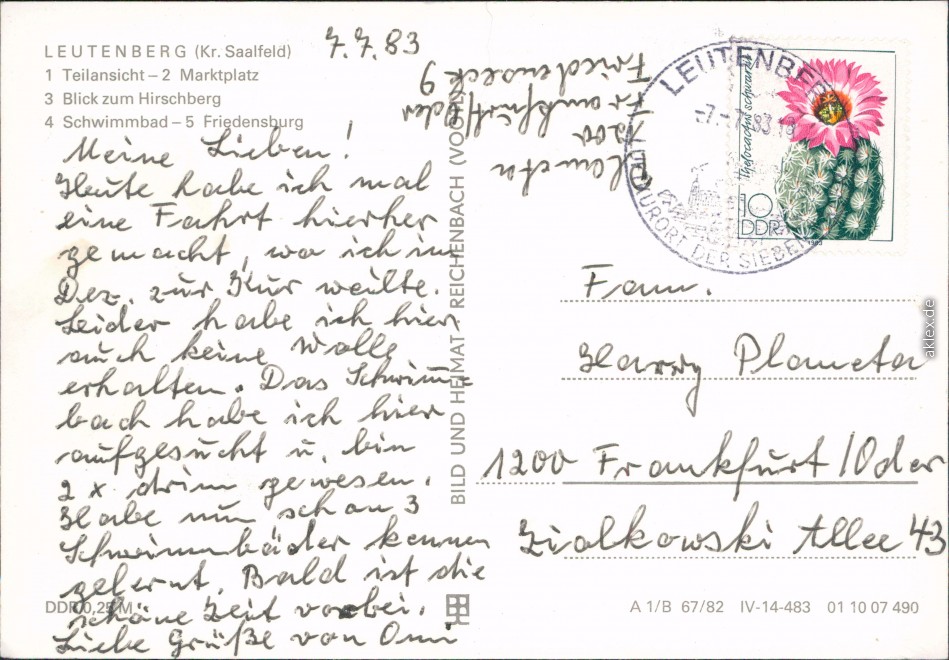 LEUTENBERG (Kr. Saalfeld)
1 Teilansicht – 2 Marktplatz
3 Blick zum Hirschberg
4 Schwimmbad – 5 Friedensburg
7.7.83
Meine Lieben!
Heute habe ich mal
eine Fahrt hierher
gemacht, wo ich im
Dez. zur Kur weilte.
Leider habe ich hier
auch keine Wolle
erhalten. Das Schwimm=
bach habe ich hier
aufgesucht u. bin
2 x drin gewesen.
Habe nun schon 3
Schwimmbäder kennen
gelernt. Bald ist die
schöne Zeit vorbei.
Liebe Grüße von Omi
DDR 0,25 M
BILD UND HEIMAT REICHENBACH (VOGTL)
Planeta
1200
Frankfurt/Oder
Friedenseck 9
LEUTENBERG
-7.-7.83.18
KURORT DER SIEBEN
Thelocactus schwarzii
10
DDR
1983
Fam.
Harry Planeta
1200 Frankfurt/Oder
Zialkowski Allee 43
A 1/B 67/82 IV-14-483 01 10 07 490
aklex.de